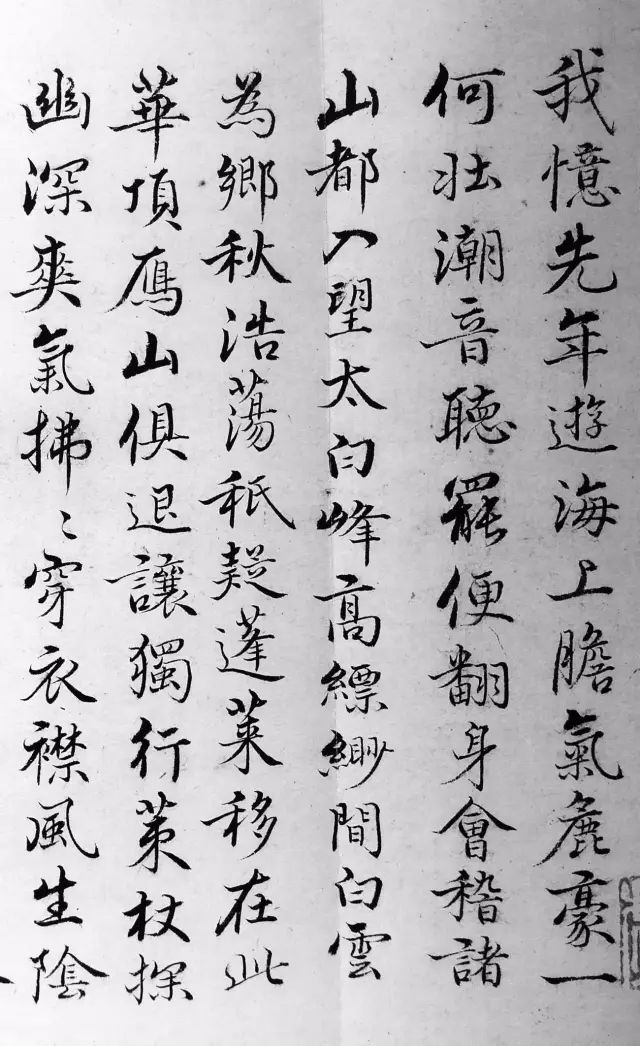 我憶先年遊海上膽氣麄豪一
何壯潮音聽罷便翻身會稽諸
山都入望太白峰高縹緲間白雲
為鄉秋浩蕩秖疑蓬萊移在此
華頂鴈山俱退讓獨行策杖探
幽深爽氣拂〻穿衣襟風生陰